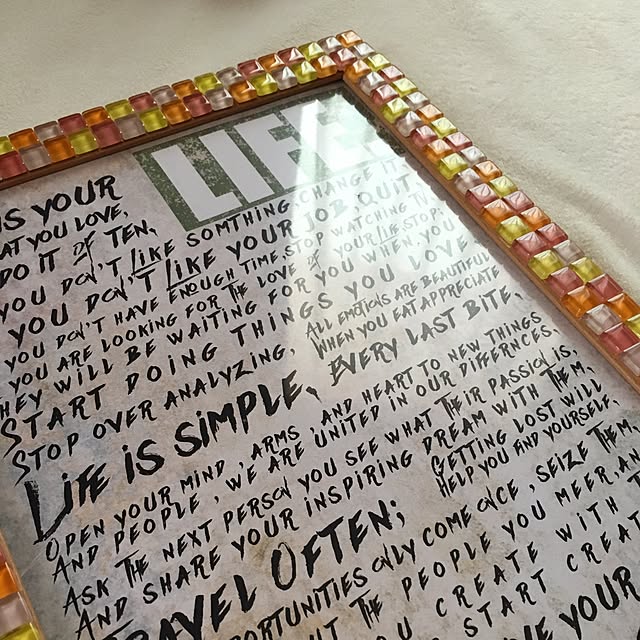 IS YOUR LIFE
AT YOU LOVE,
DO IT OF TEN,
YOU DON'T LIKE SOMTHING, CHANGE IT
YOU DON'T LIKE YOUR JOB QUIT,
YOU DON'T HAVE ENOUGH TIME, STOP WATCHING
YOU ARE LOOKING FOR THE LOVE OF YOUR LIFE STOP,
HEY WILL BE WAITING FOR YOU WHEN YOU
START DOING THINGS YOU LOVE
STOP OVER ANALYZING, ALL EMOTIONS ARE BEAUTIFUL
WHEN YOU EAT APPRECIATE
LIFE IS SIMPLE, EVERY LAST BITE,
OPEN YOUR MIND, ARMS, AND HEART TO NEW THINGS
AND PEOPLE, WE ARE UNITED IN OUR DIFFERNCES,
ASK THE NEXT PERSON YOU SEE WHAT THEIR PASSION IS,
AND SHARE YOUR INSPIRING DREAM WITH THEM,
TRAVEL OFTEN; GETTING LOST WILL
HELP YOU FIND YOURSELF.
OPPORTUNITIES ONLY COME ONCE, SEIZE THEM
THE PEOPLE YOU MEER, AN
YOU CREATE WITH T
START CREAT
YOUR